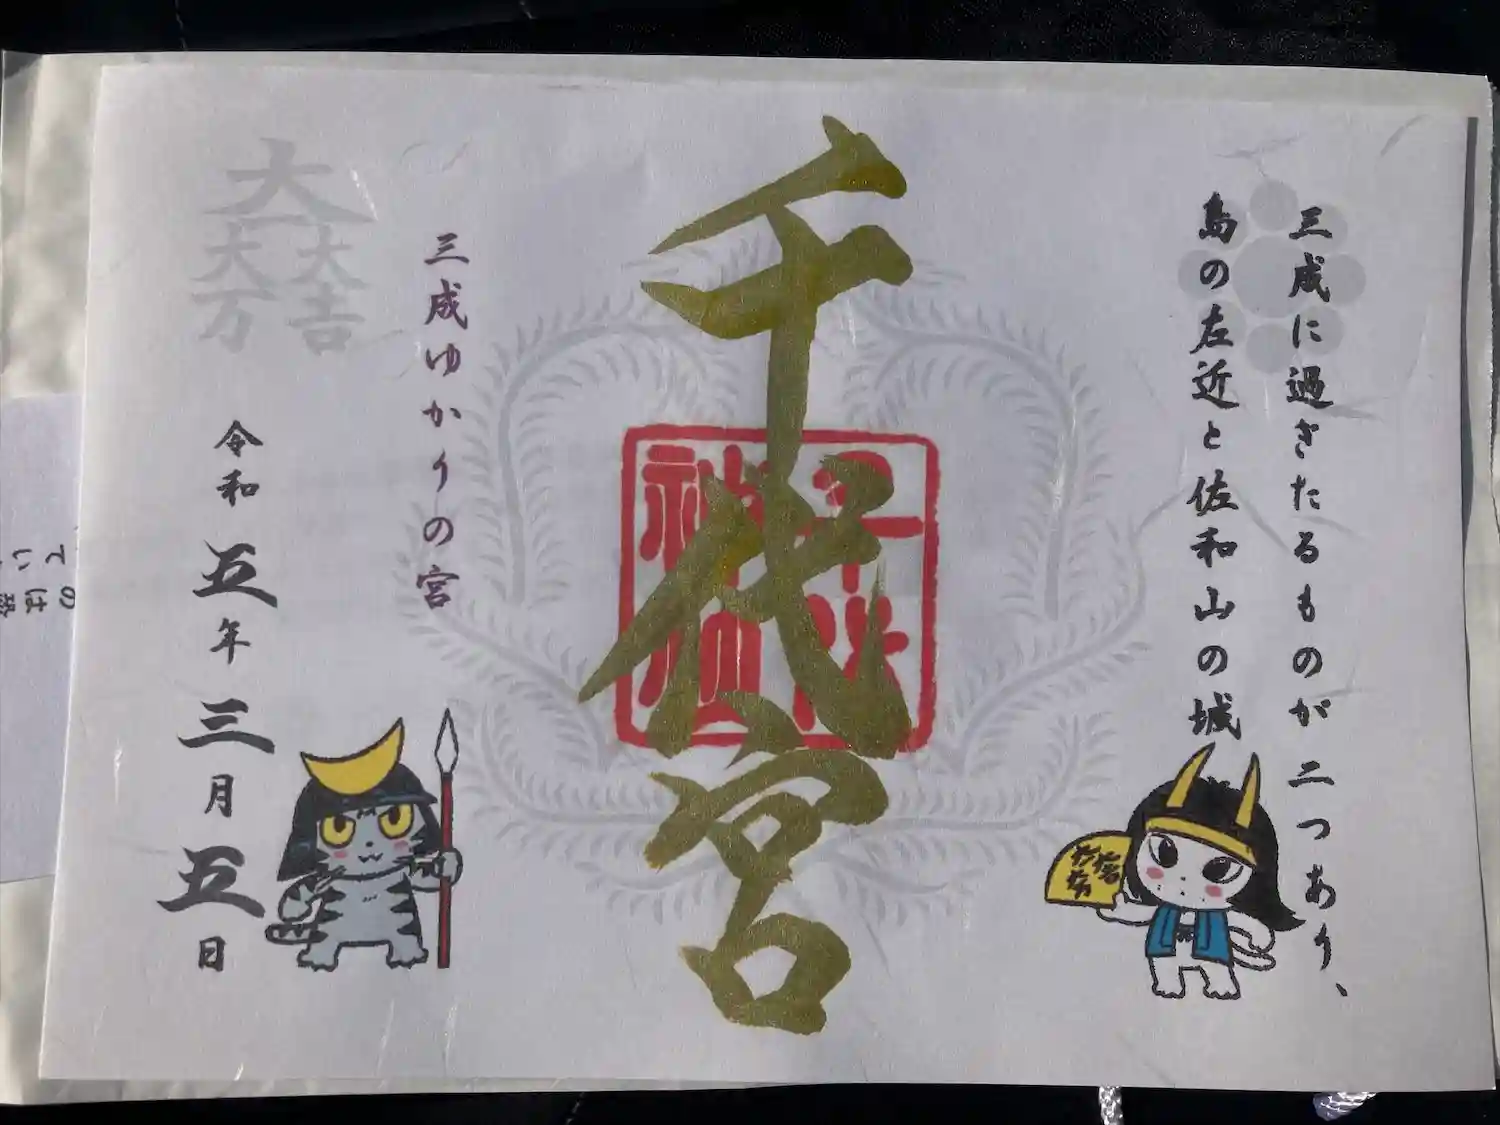 三成に過ぎたるものが二つあり、
島の左近と佐和山の城
千代宮
三成ゆかりの宮
大一大万大吉
令和五年三月五日